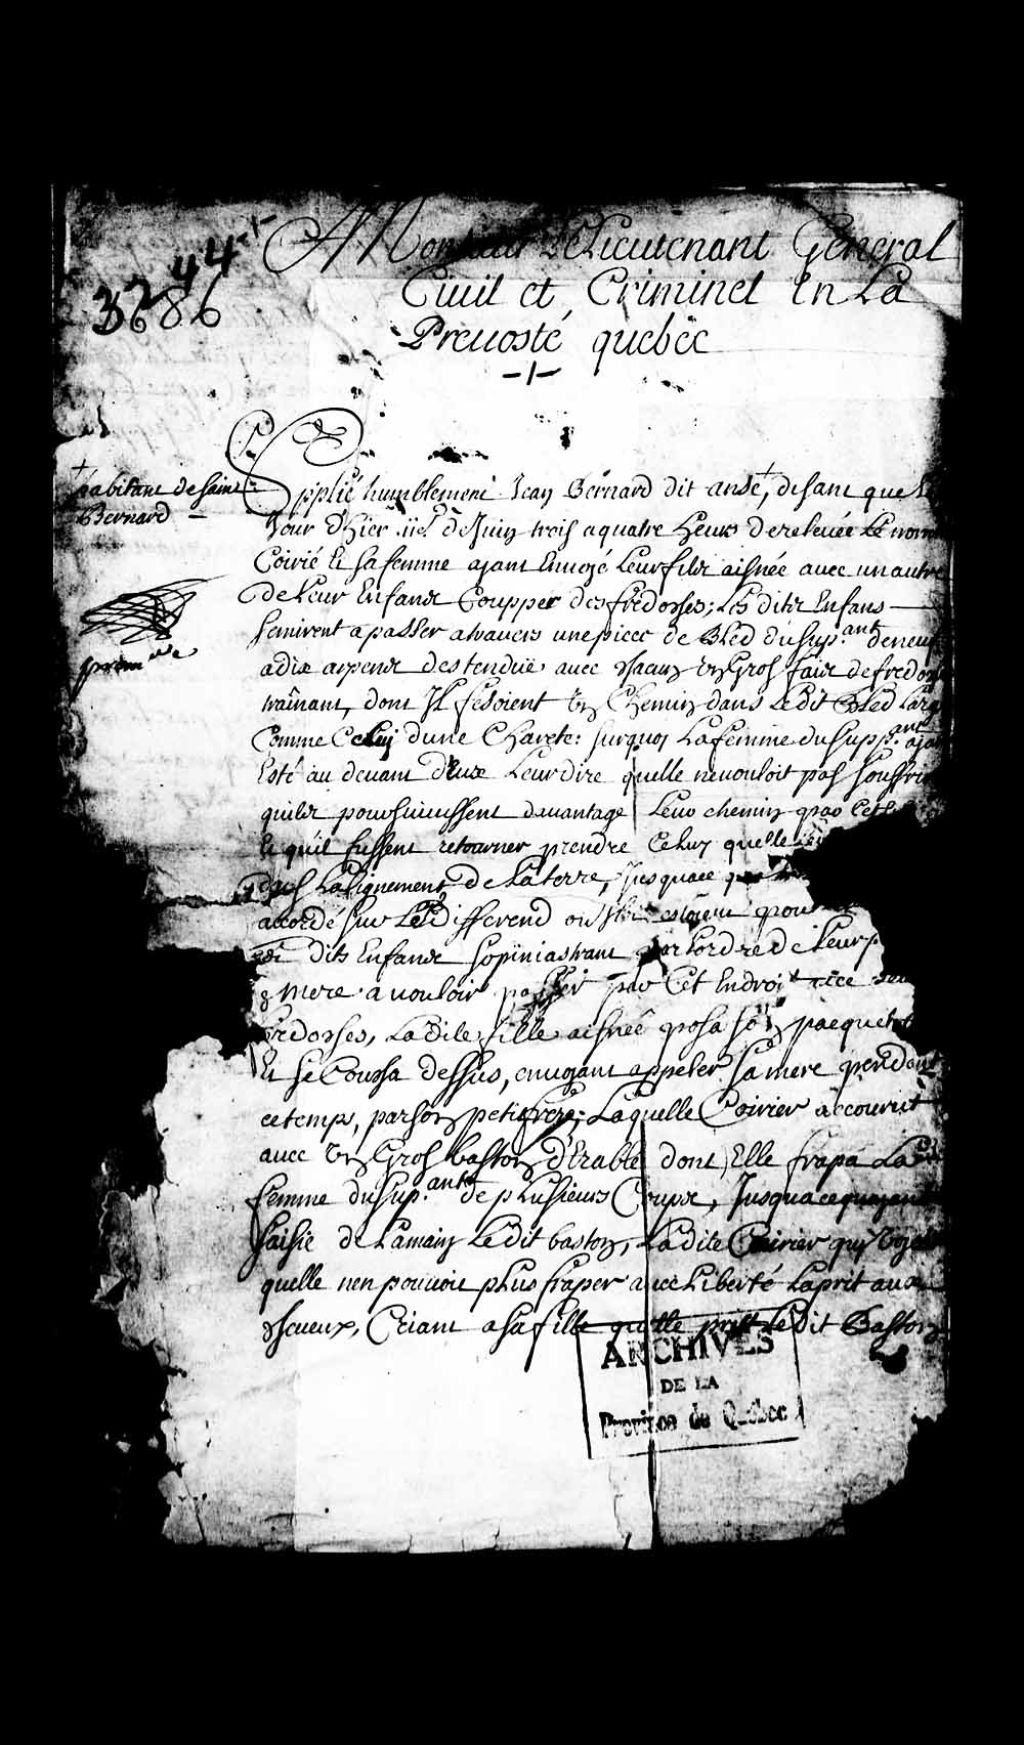 44
3286
A Monsieur Le Lieutenant General
Ciuil et Criminel En La
Preuosté quebëc
habitant de saint
Bernard
Supplie humblement Jean Bernard dit ansé, disant que
Jour d'hier 11e. de Juin trois a quatre heures de releuée Le nommé
Coirié Et sa femme ayant Enuoyé Leur fille aisnée auec un autre
de Leur Enfans Coupper des fredosses; Les dits Enfans
se mirent a passer a trauers une piece de Bled du sup.ant de neuf
a dix arpens destenduë auec chacun un Gros faix de fredosses
trainant, dont Ils fesoient un Chemin dans Ledit Bled Large
Comme Celuy d'une Charete: surquoy La femme du supp.ant ayant
Esté au deuant d'Eux Leur dire quelle ne vouloit pas souffrir
quils poursuiuissent dauantage Leur chemin par Cet
Et quil fussent retourner prendre Celuy quelle
Lalignement de La terre, Jusquace que
accordé sur Le differend ou Ils estoient pour
dits Enfans sopiniastrant par Lordre de Leur p
& Mere a vouloir passer par Cet Endroit auec
fredosses, Ladite fille aisnée posa son pacquet
Et se Coucha dessus, enuoyant appeler sa mere pendant
ce temps, par son petit frere; Laquelle Coirier accourut
auec un Gros baston d'Erable dont Elle frapa La
femme du sup.ant de plusieurs Coups, Jusqua ce quayant
saisie de La main Ledit baston, Ladite Coirier qui voyant
quelle nen pouuoit plus fraper auec Liberté Laprit aux
cheueux, Criant a sa fille quelle prist Ledit Baston
ARCHIVES
DE LA
Province de Québec